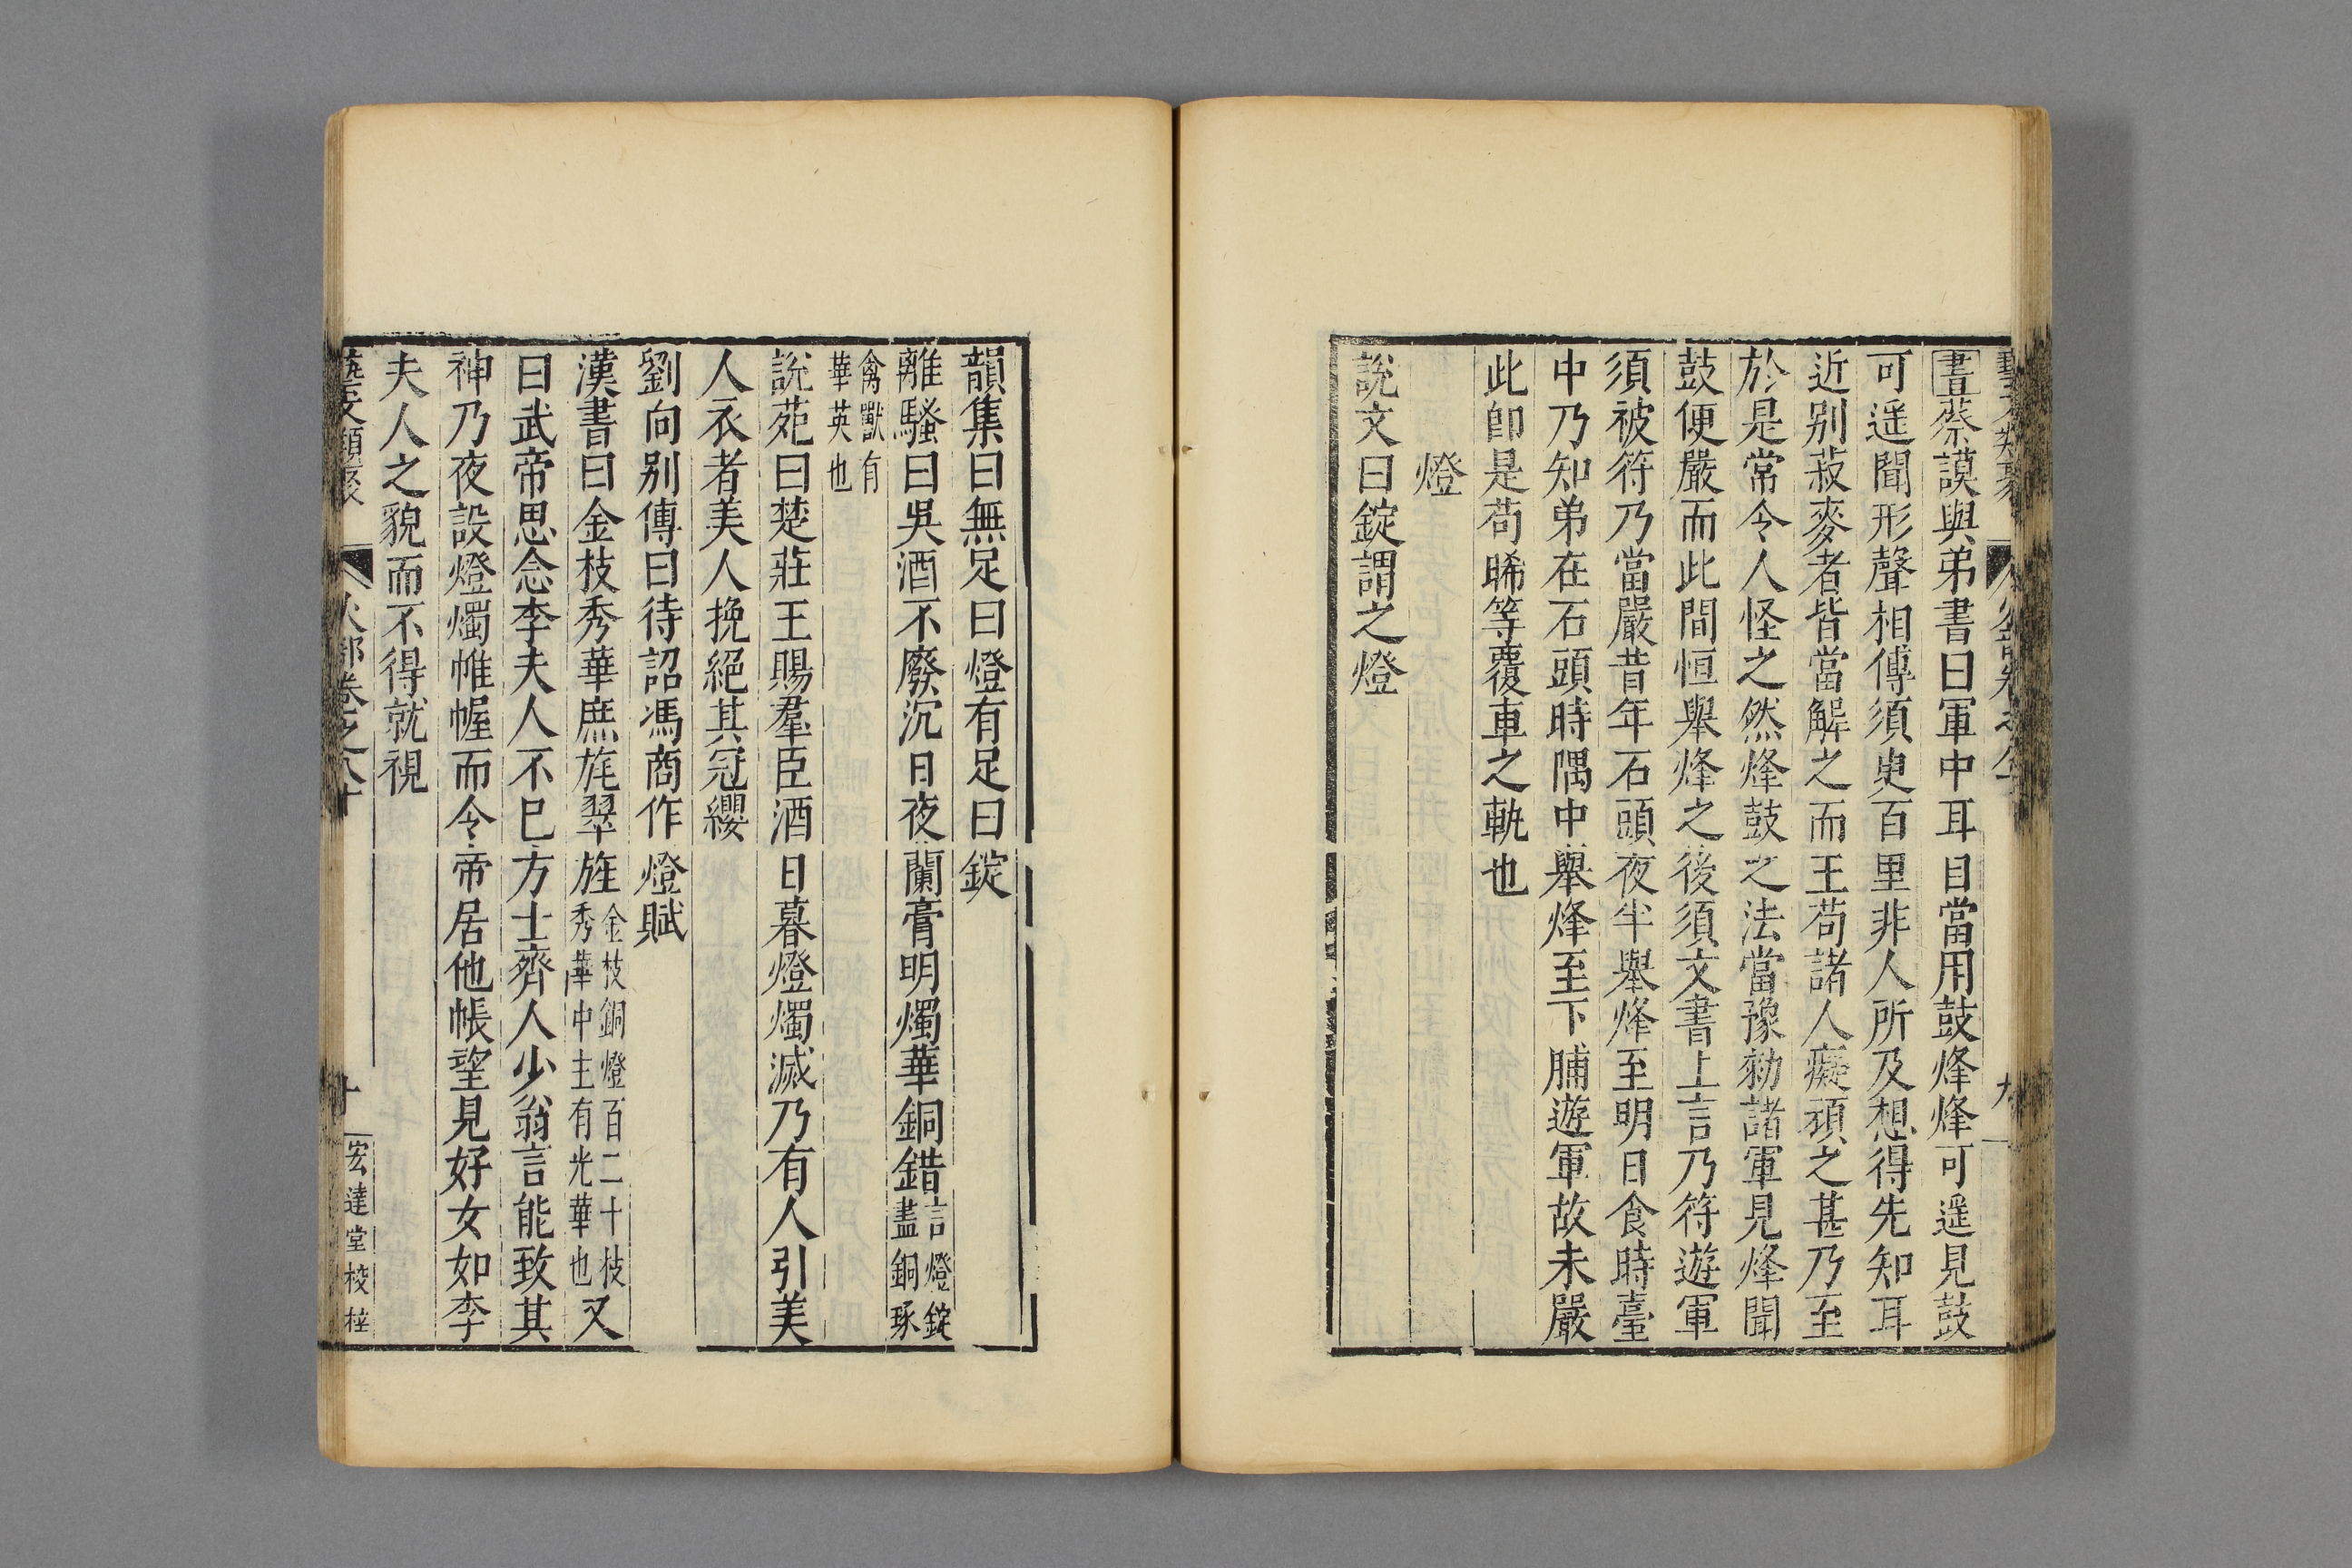 書蔡謨與弟書曰軍中耳目當用鼓烽烽可遥見鼓
可遥聞形聲相傳須臾百里非人所及想得先知耳
近别菽麥者皆當解之而王苟諸人癡頑之甚乃至
於是常令人怪之然烽鼓之法當豫勑諸軍見烽聞
鼓便嚴而此間恒舉烽之後須文書上言乃符遊軍
須被符乃當嚴昔年石頭夜半舉烽至明日食時臺
中乃知弟在石頭時隅中舉烽至下脯遊軍故未嚴
此卽是苟睎等覆車之軌也
燈
說文曰錠謂之燈
九
韻集曰無足曰燈有足曰錠
離騷曰吳酒不廢沉日夜蘭膏明燭華銅錯言燈錠盡銅琢
禽獸有華英也
說苑曰楚莊王賜羣臣酒日暮燈燭滅乃有人引美
人衣者美人挽絕其冠纓
劉向别傳曰待詔馮商作燈賦
漢書曰金枝秀華庶旄翠旌金枝銅燈百二十枝秀華中主有光華也又
曰武帝思念李夫人不已方士齊人少翁言能致其
神乃夜設燈燭帷幄而令帝居他帳望見好女如李
夫人之貌而不得就視
藝文類聚 火部卷之八十 十 宏達堂校栞